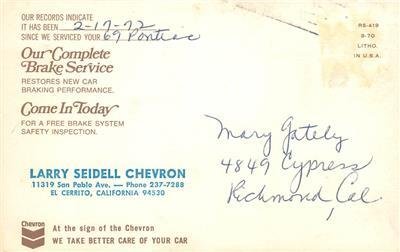 OUR RECORDS INDICATE
IT HAS BEEN 2-17-72
SINCE WE SERVICED YOUR 69 Pontiac
Our Complete
Brake Service
RESTORES NEW CAR
BRAKING PERFORMANCE.
Come In Today
FOR A FREE BRAKE SYSTEM
SAFETY INSPECTION.
RS-419
9-70
LITHO.
IN U.S.A.
Mary Gately
4849 Cypress
Richmond, Cal
LARRY SEIDELL CHEVRON
11319 San Pablo Ave. — Phone 237-7288
EL CERRITO, CALIFORNIA 94530
Chevron
At the sign of the Chevron
WE TAKE BETTER CARE OF YOUR CAR